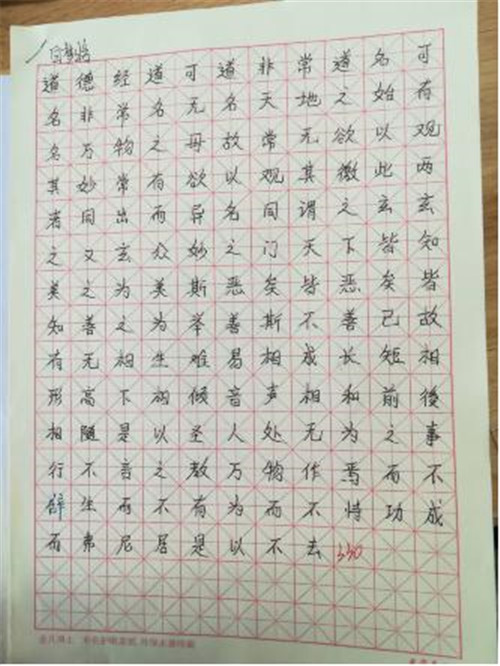 道德经道可道非常道名可
名非常名无名天地之始有
名万物之母故常无欲以观
其妙常有欲以观其微此两
者同出而异名同谓之玄玄
之又玄众妙之门天下皆知
美之为美斯恶矣皆恶矣皆
知善之为举善斯不善已故
有无相生难易相成长短相
形高下相倾音声相和前後
相随是以圣人处无为之事
行不言之教万物作焉而不
辞生而不有为而不恃功成
而弗尼居是以不去 330